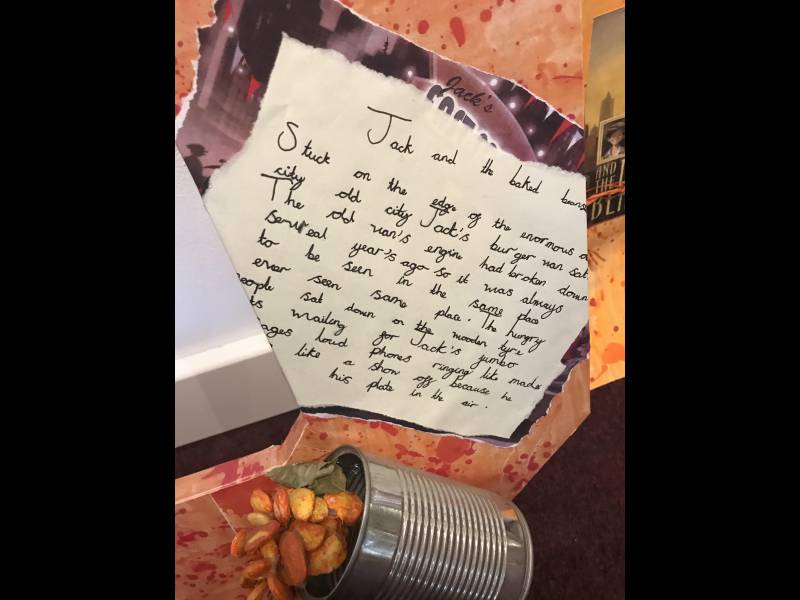 Jack's
Jack and the baked beans
Stuck on the edge of the enormous
city old city Jack's burger van sat
The old van's engine had broken down
several year's ago so it was always
to be seen in the same place
ever seen same place. The hungry
people sat down on the wooden tyre
wailing for Jack's jumbo
loud phones ringing like mads
like a show off because he
his plate in the air.
AND
THE